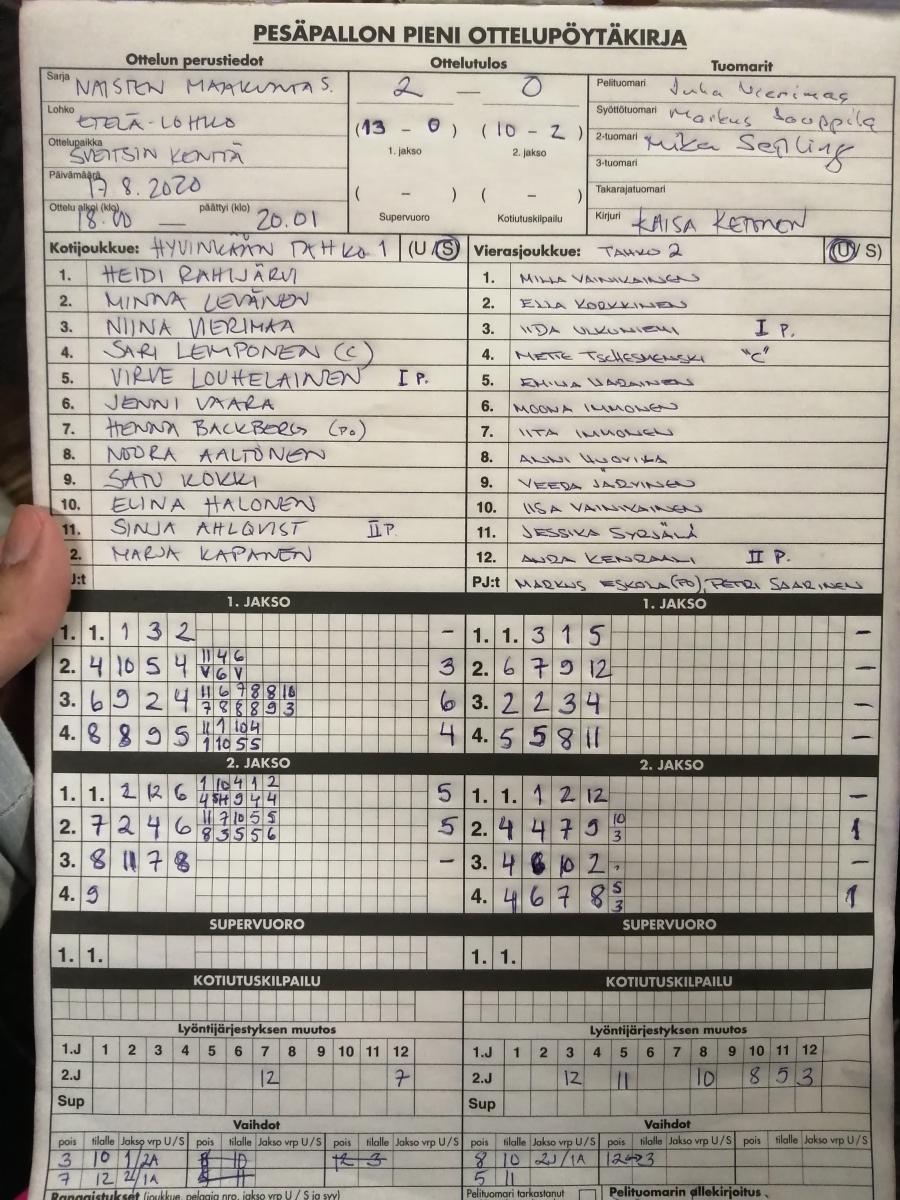 PESÄPALLON PIENI OTTELUPÖYTÄKIRJA
Ottelun perustiedot Ottelutulos Tuomarit
Sarja NAISTEN MAAKUNTAS.
2 — 0
Pelituomari Juha Vierimaa
Lohko ETELÄ-LOHKO
Syöttötuomari Markus Sauppila
(13 - 0) (10 - 2)
1. jakso 2. jakso
Ottelupaikka SVEITSIN KENTÄ
2-tuomari Mika Sepling
3-tuomari
Päivämäärä 17 8. 2020
Takarajatuomari
( - ) ( - )
Supervuoro Kotiutuskilpailu
Ottelu alkoi (klo) 18.00 — päättyi (klo) 20.01
Kirjuri KAISA KETONEN
Kotijoukkue: HYVINKÄÄN TAHKO 1 (U/S) Vierasjoukkue: TAHKO 2 (U/S)
1. HEIDI RAHIJÄRVI 1. MILLA VAINIKAINEN
2. MINNA LEVÄNEN 2. ELLA KORKKINEN
3. NIINA VIERIMAA 3. IIDA ULKUNIEMI I P.
4. SARI LEMPONEN (C) 4. METTE TSCHESMENSKI "C"
5. VIRVE LOUHELAINEN I P. 5.
6. JENNI VAARA 6. MOONA IMMONEN
7. HENNA BACKBERG (PO) 7. IITA IMMONEN
8. NOORA AALTONEN 8. ANNI
9. SATU KOKKI 9. VEERA JÄRVINEN
10. ELINA HALONEN 10. IISA VAINIKAINEN
11. SINJA AHLQVIST II P. 11. JESSIKA SYRJÄLÄ
2. MARJA KAPANEN 12. II P.
J:t PJ:t MARKUS ESKOLA (PO), PETRI SAARINEN
1. JAKSO 1. JAKSO
1. 1. 1 3 2 – 1. 1. 3 1 5 –
2. 4 10 5 4 11 4 6 3 2. 6 7 9 12 –
V 6 V
3. 6 9 2 4 11 6 7 8 8 10 6 3. 2 2 3 4 –
7 8 8 8 9 3
4. 8 8 9 5 11 1 10 4 4 4. 5 5 8 11 –
1 10 5 5
2. JAKSO 2. JAKSO
1. 1. 2 12 6 1 10 4 1 2 5 1. 1. 1 2 12 –
4 5H 9 4 4
2. 7 2 4 6 11 7 10 5 5 5 2. 4 4 7 9 10 1
8 3 5 5 6 3
3. 8 11 7 8 – 3. 4 6 10 2 –
4. 9 4. 4 6 7 8 5 1
3
SUPERVUORO SUPERVUORO
1. 1. 1. 1.
KOTIUTUSKILPAILU KOTIUTUSKILPAILU
Lyöntijärjestyksen muutos Lyöntijärjestyksen muutos
1.J 1 2 3 4 5 6 7 8 9 10 11 12 1.J 1 2 3 4 5 6 7 8 9 10 11 12
2.J 12 7 2.J 12 11 10 8 5 3
Sup Sup
Vaihdot Vaihdot
pois tilalle Jakso vrp U/S pois tilalle Jakso vrp U/S pois tilalle Jakso vrp U/S pois tilalle Jakso vrp U/S pois tilalle Jakso vrp U/S
3 10 1/2A 8 10 12 3 8 10 2J/1A 12 3
7 12 2/1A 5 11 5 11
Rangaistukset (joukkue, pelaaja nro, jakso vrp U/S ja syy) Pelituomari tarkastanut Pelituomarin allekirjoitus